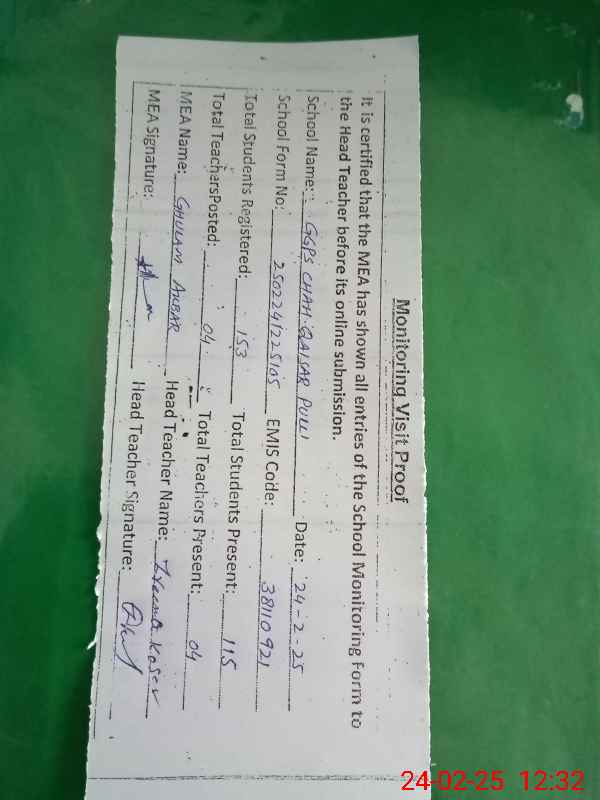 Monitoring Visit Proof
It is certified that the MEA has shown all entries of the School Monitoring Form to
the Head Teacher before its online submission.
School Name: GGPS CHAH QAISAR PULLI Date: 24-2-25
School Form No: 2502241225105 EMIS Code: 38110921
Total Students Registered: 153 Total Students Present: 115
Total TeachersPosted: 04 Total Teachers Present: 04
MEA Name: GHULAM AKBAR Head Teacher Name: Koser
MEA Signature: Head Teacher Signature:
24-02-25 12:32